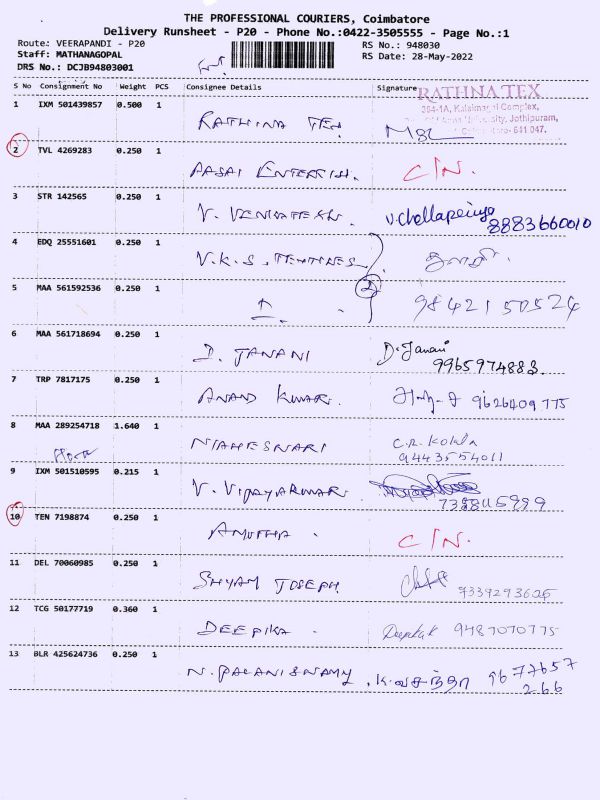 THE PROFESSIONAL COURIERS, Coimbatore
Delivery Runsheet - P20 - Phone No.:0422-3505555 - Page No.:1
Route: VEERAPANDI - P20
RS No.: 948030
Staff: MATHANAGOPAL
RS Date: 28-May-2022
DRS No.: DCJB94803001
S No Consignment No Weight PCS Consignee Details Signature
RATHNA TEX
1 IXM 501439857 0.500 1
Complex,
Jothipuram,
641 047.
RATHINA TEX
2 TVL 4269283 0.250 1
C/N.
3 STR 142565 0.250 1
V. VENKATESH. V.Chellapeiya
8883660010
4 EDQ 25551601 0.250 1
V.K.S. TEXTILES
5 MAA 561592536 0.250 1
2
9842150524
6 MAA 561718694 0.250 1
D. JANANI D. Janani
9965974883.
7 TRP 7817175 0.250 1
ANAND KUMAR. 9626409775
8 MAA 289254718 1.640 1
MAHESWARI C.R. Kokila
9443554011
9 IXM 501510595 0.215 1
V. VIJAYAKUMAR
10 TEN 7198874 0.250 1
AMUTHA. C/N.
11 DEL 70060985 0.250 1
SHYAM JOSEPH 9339293626
12 TCG 50177719 0.360 1
DEEPIKA. Deepak 9487070775
13 BLR 425624736 0.250 1
N. PALANISWAMY, K.வசந்தா 9677657
266